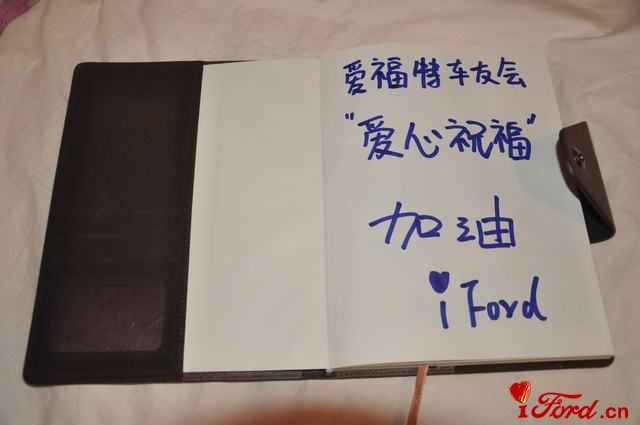 爱福特车友会
"爱心祝福"
加油
i Ford
iFord.cn